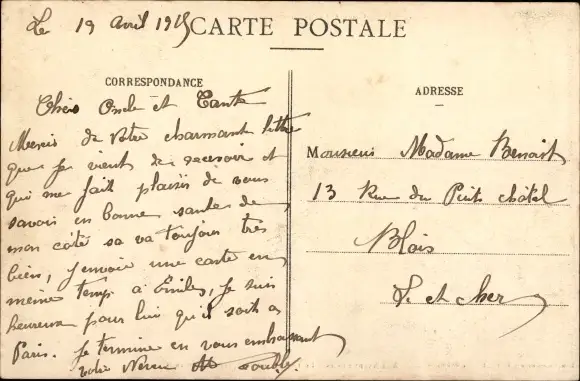 Le 19 avril 1915
CARTE POSTALE
CORRESPONDANCE
Chers Oncle et Tante
Mercis de votre charmante lettre
que je vient de recevoir et
qui me fait plaisir de vous
savoir en bonne santer de
mon côté sa va toujour très
bien, j'envoie une carte en
meme temp à Emiles, je suis
heureux pour lui qu'il soit a
Paris. Je termine en vous embrassant
votre Neveu
ADRESSE
Monsieur Madame Benoist
13 Rue du Puits châtel
Blois
L. et cher